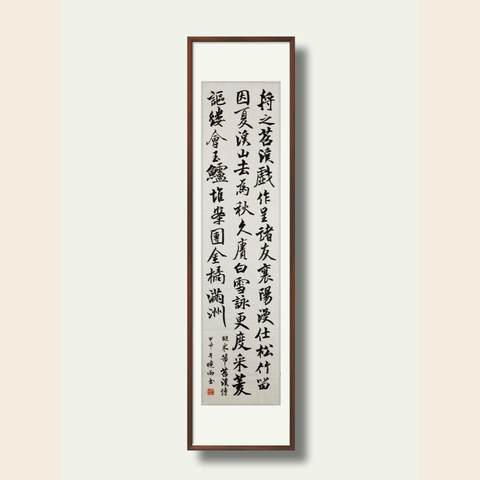 將之苕溪戲作呈諸友襄陽漫仕松竹留
因夏溪山去為秋久賡白雪詠更度采菱
謳縷會玉鱸堆案團金橘滿洲
米芾苕溪詩
年曉雨書